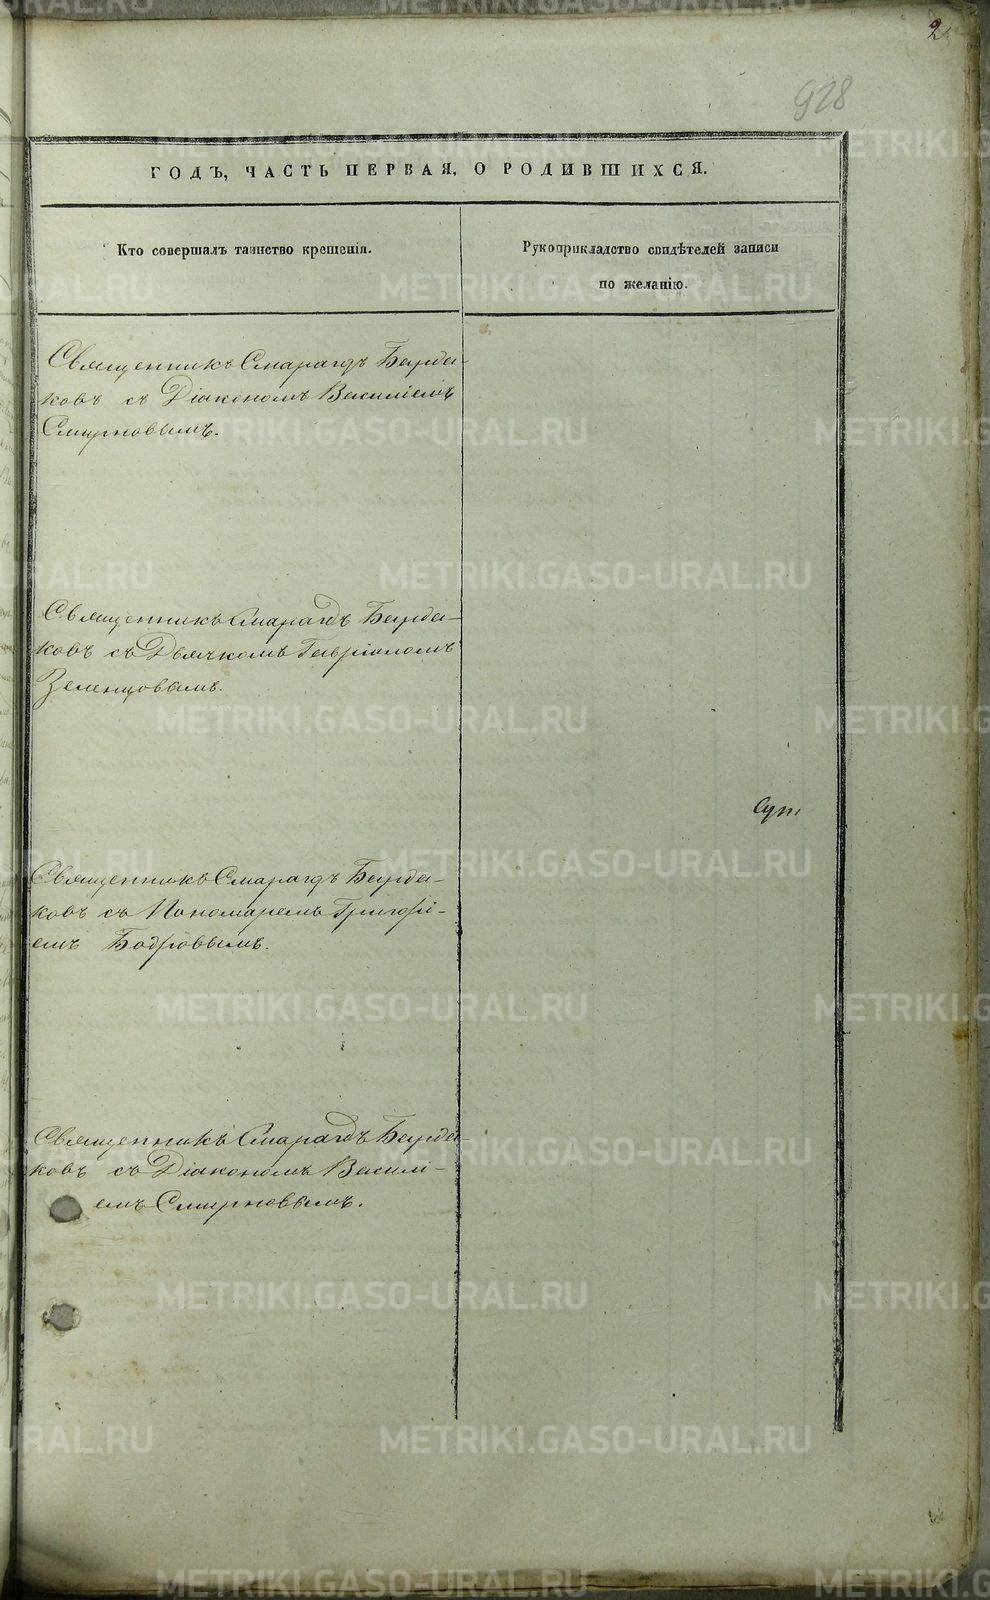 2
928
ГОДЪ, ЧАСТЬ ПЕРВАЯ, О РОДИВШИХСЯ.
Кто совершалъ таинство крещенія.
Рукоприкладство свидѣтелей записи
по желанію.
Священникъ Смарагдъ Бурда-
ковъ съ Діакономъ Василіемъ
Смирновымъ.
Священникъ Смарагдъ Бурда-
ковъ съ Дьячкомъ Гавріиломъ
Зеленцовымъ.
Священникъ Смарагдъ Бурда-
ковъ съ Пономаремъ Григорі-
емъ Бодровымъ.
Священникъ Смарагдъ Бурда-
ковъ съ Діакономъ Василі-
емъ Смирновымъ.
METRIKI.GASO-URAL.RU